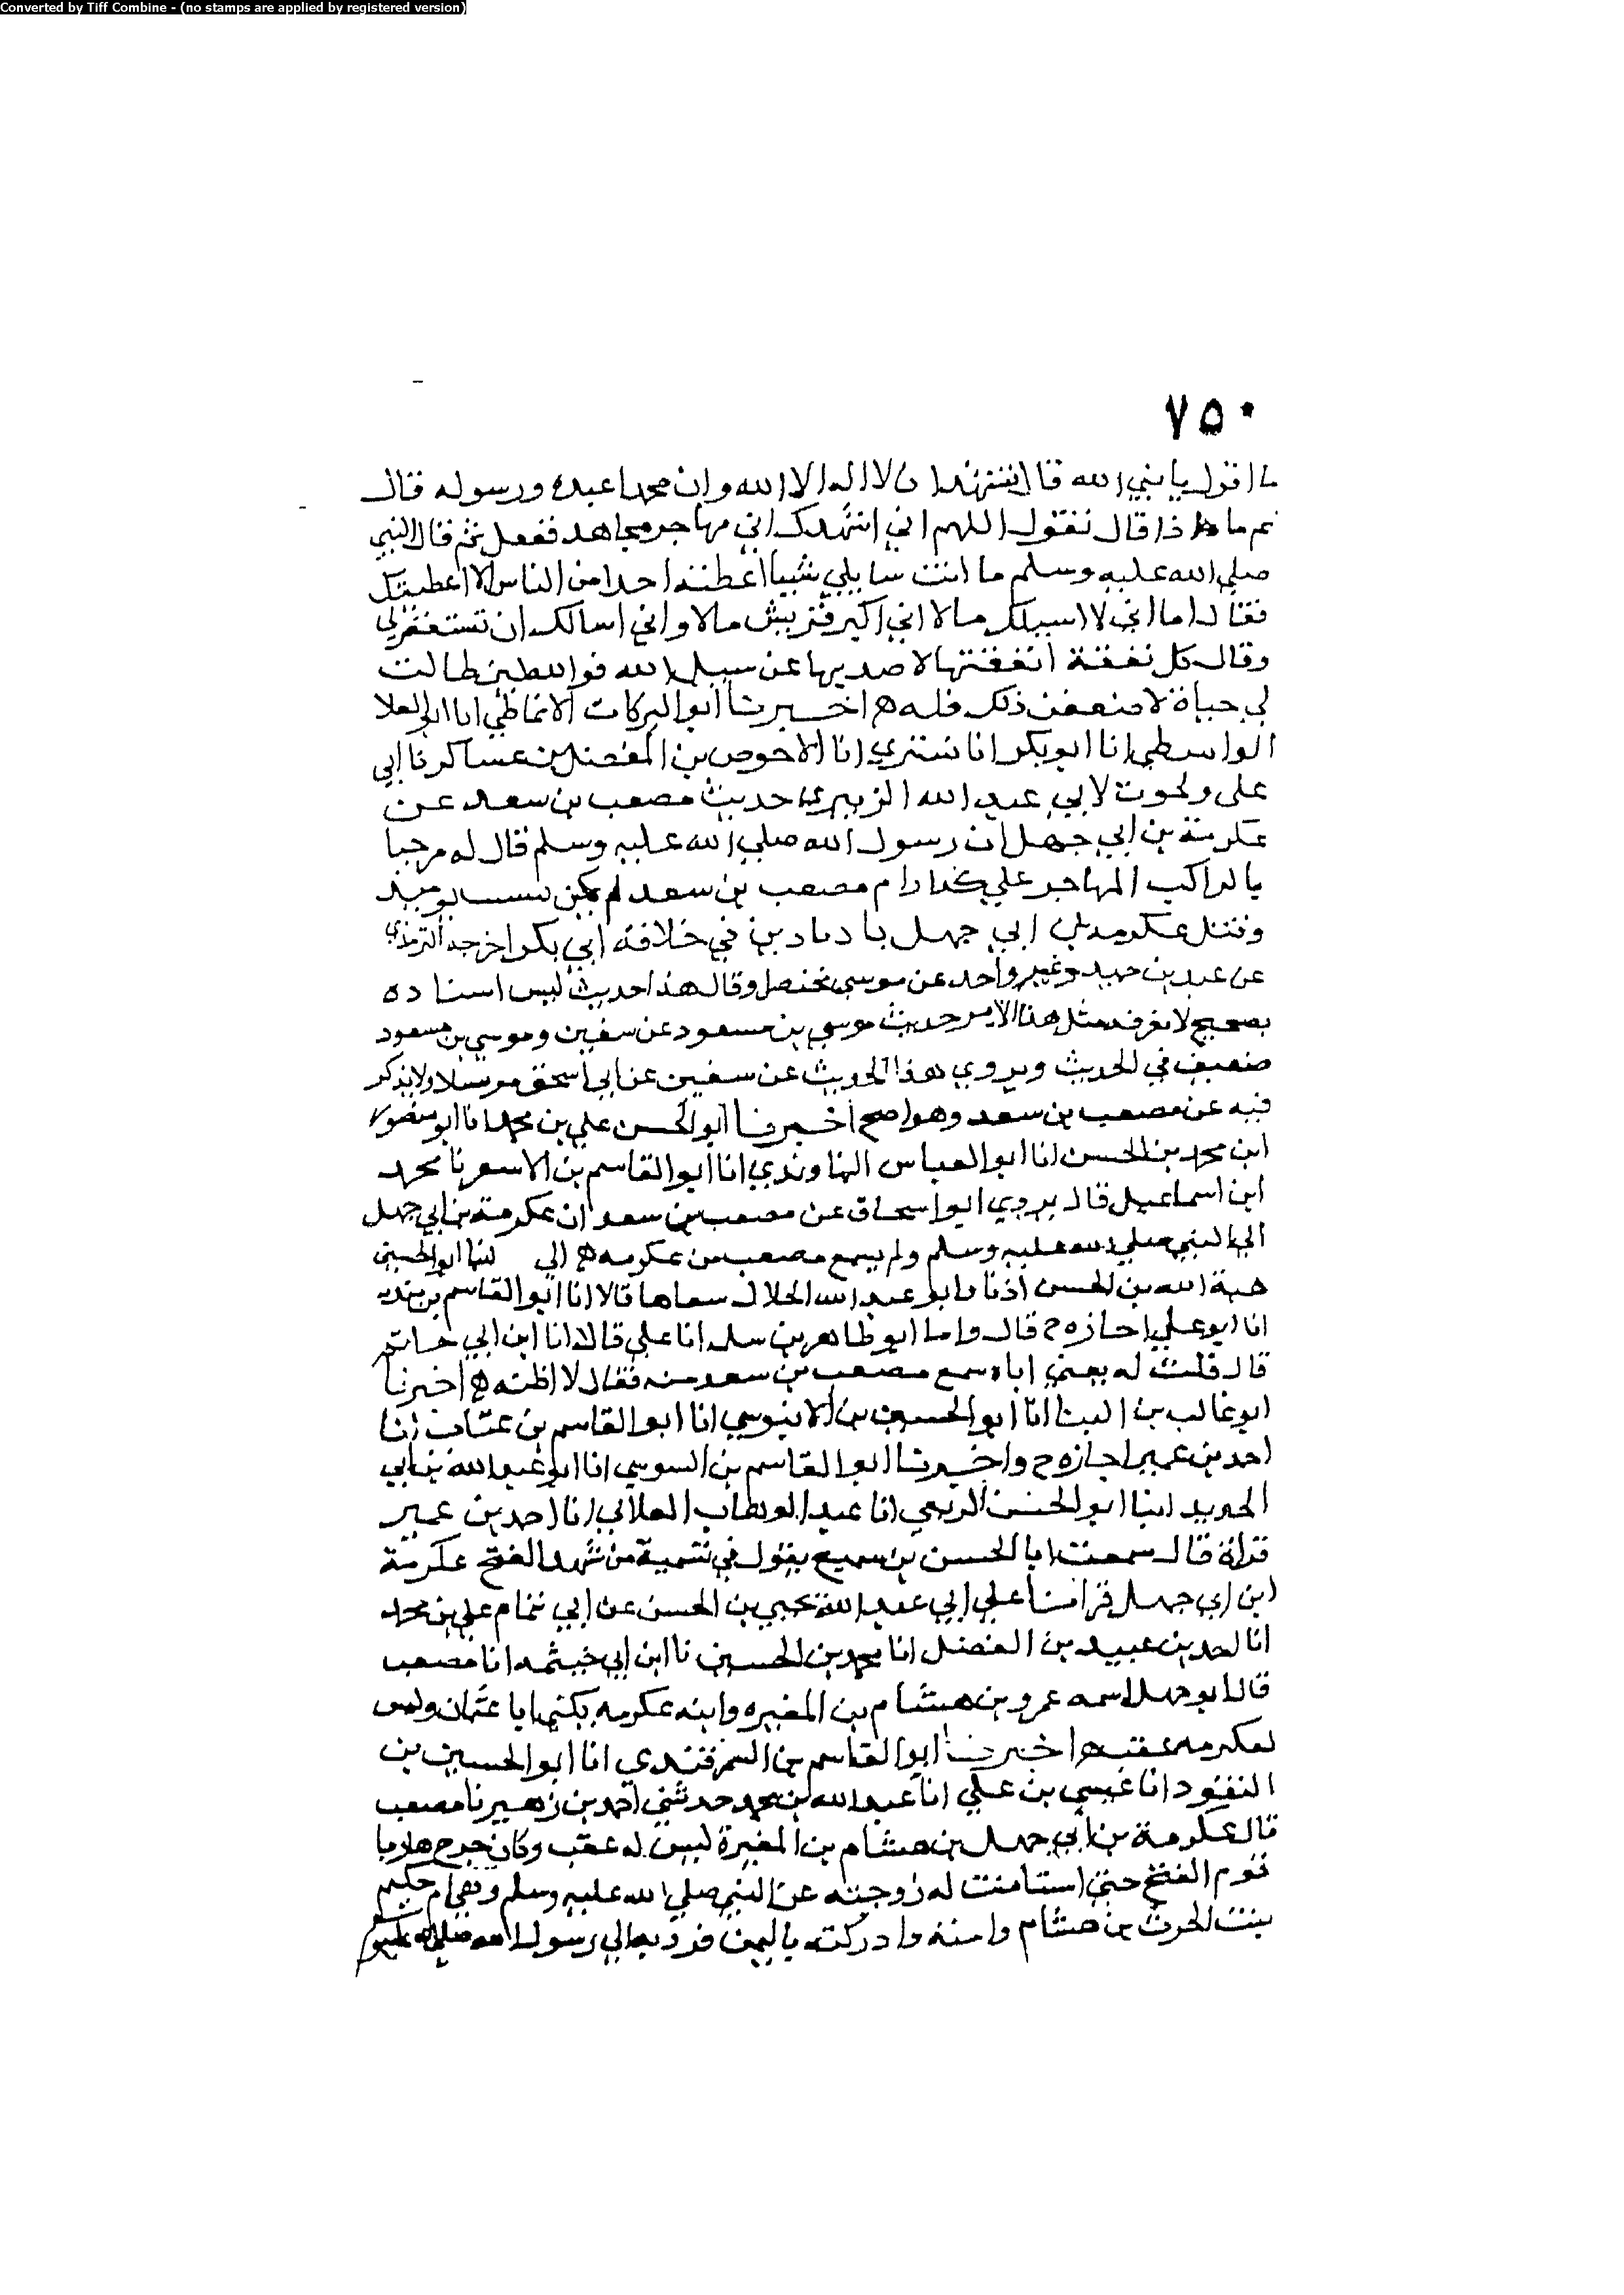 Converted by Tiff Combine - (no stamps are applied by registered version)
٧٥٠
ما اقول يا نبي الله قال تشهد ان لا اله الا الله وان محمدا عبده ورسوله قال
ثم ماذا قال تقول اللهم اني اشهدك اني مهاجر مجاهد ففعل ثم قال النبي
صلي الله عليه وسلم ما انت سايلي شيا اعطيته احدا من الناس الا اعطيتك
فقال اما اني لا اسيلك مالا اني اكثر قريش مالا واني اسالك ان تستغفر لي
وقال كل نفقة انفقتها لاصد بها عن سبيل الله فوالله لين طالت
لي حياة لاضعفن ذلك كله اخبرنا ابو البركات الانماطي انا ابو العلا
الواسطي انا ابو بكر البابسيري انا الاحوص بن المفضل بن غسان نا ابي
عبد الله الزبيري حديث مصعب بن سعد عن
عكرمة بن ابي جهل ان رسول الله صلي الله عليه وسلم قال له مرحبا
بالراكب المهاجر علي مصعب بن سعد لم يكن
وقتل عكرمه بن ابي جهل باجنادين في خلافة ابي بكر اخرجه الترمذي
عن عبد بن حميد وغير واحد عن موسي مختصرا وقال هذا حديث ليس اسناده
بصحيح لا نعرفه مثل هذا الا من حديث موسي بن مسعود عن سفين وموسي بن مسعود
ضعيف في الحديث ويروي هذا الحديث عن سفين عن ابي اسحق مرسلا ولا يذكر
فيه عن مصعب بن سعد وهو اصح اخبرنا ابو الحسن علي بن محمد انا ابو منصور
ابن محمد بن الحسن انا ابو العباس النهاوندي انا ابو القاسم بن الاشقر نا محمد
ابن اسماعيل قال يروي ابو اسحاق عن مصعب بن سعد ان عكرمة بن ابي جهل
اتي النبي صلي الله عليه وسلم ولم يسمع مصعب من عكرمه ابو الحسين
هبة الله بن الحسن اذنا وابو عبد الله الخلال سماعا قالا انا ابو القاسم بن منده
انا ابو علي اجازه ح قال وانا ابو طاهر بن سلمه انا علي قالا انا ابن ابي حاتم
قال قلت له يعني اباه سمع مصعب بن سعد منه فقال لا اظنه اخبرنا
ابو غالب بن البنا انا ابو الحسين بن الابنوسي انا ابو القاسم بن عتاب انا
احمد بن عمير اجازه ح واخبرنا ابو القاسم بن السوسي انا ابو عبد الله بن ابي
الحديد انبا ابو الحسن الربعي انا عبد الوهاب الكلابي انا احمد بن عمير
قراة قال سمعت ابا الحسن بن سميع يقول في تسمية من شهد الفتح عكرمة
ابن ابي جهل قرانا علي ابي عبد الله يحيي بن الحسن عن ابي تمام علي بن محمد
انا احمد بن عبيد بن الفضل انا محمد بن الحسين نا ابن ابي خيثمه انا مصعب
قال ابو جهل اسمه عمرو بن هشام بن المغيره وابنه عكرمه يكني ابا عثمان وليس
لعكرمه عقب اخبرنا ابو القاسم بن السمرقندي انا ابو الحسين بن
النقور انا عيسي بن علي انا عبد الله بن محمد حدثني احمد بن زهير نا مصعب
قال عكرمة بن ابي جهل بن هشام بن المغيرة ليس له عقب وكان خرج هاربا
يوم الفتح حتي استامنت له زوجته عن النبي صلي الله عليه وسلم وهي ام حكيم
بنت الحرث بن هشام وامنه وادركته باليمن فردته الي رسول الله صلي الله عليه وسلم